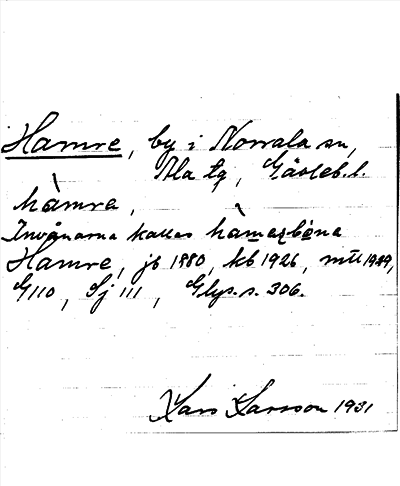 Hamre, by i Norrala sn,
Ala tg, Gävleb. l.
hàmra,
Invånarna kallas hàmaʐbèna
Hamre, jb 1880, kb 1926, mtl 1929,
G110, Sj 111, Glys. s. 306.
Lars Larsson 1931